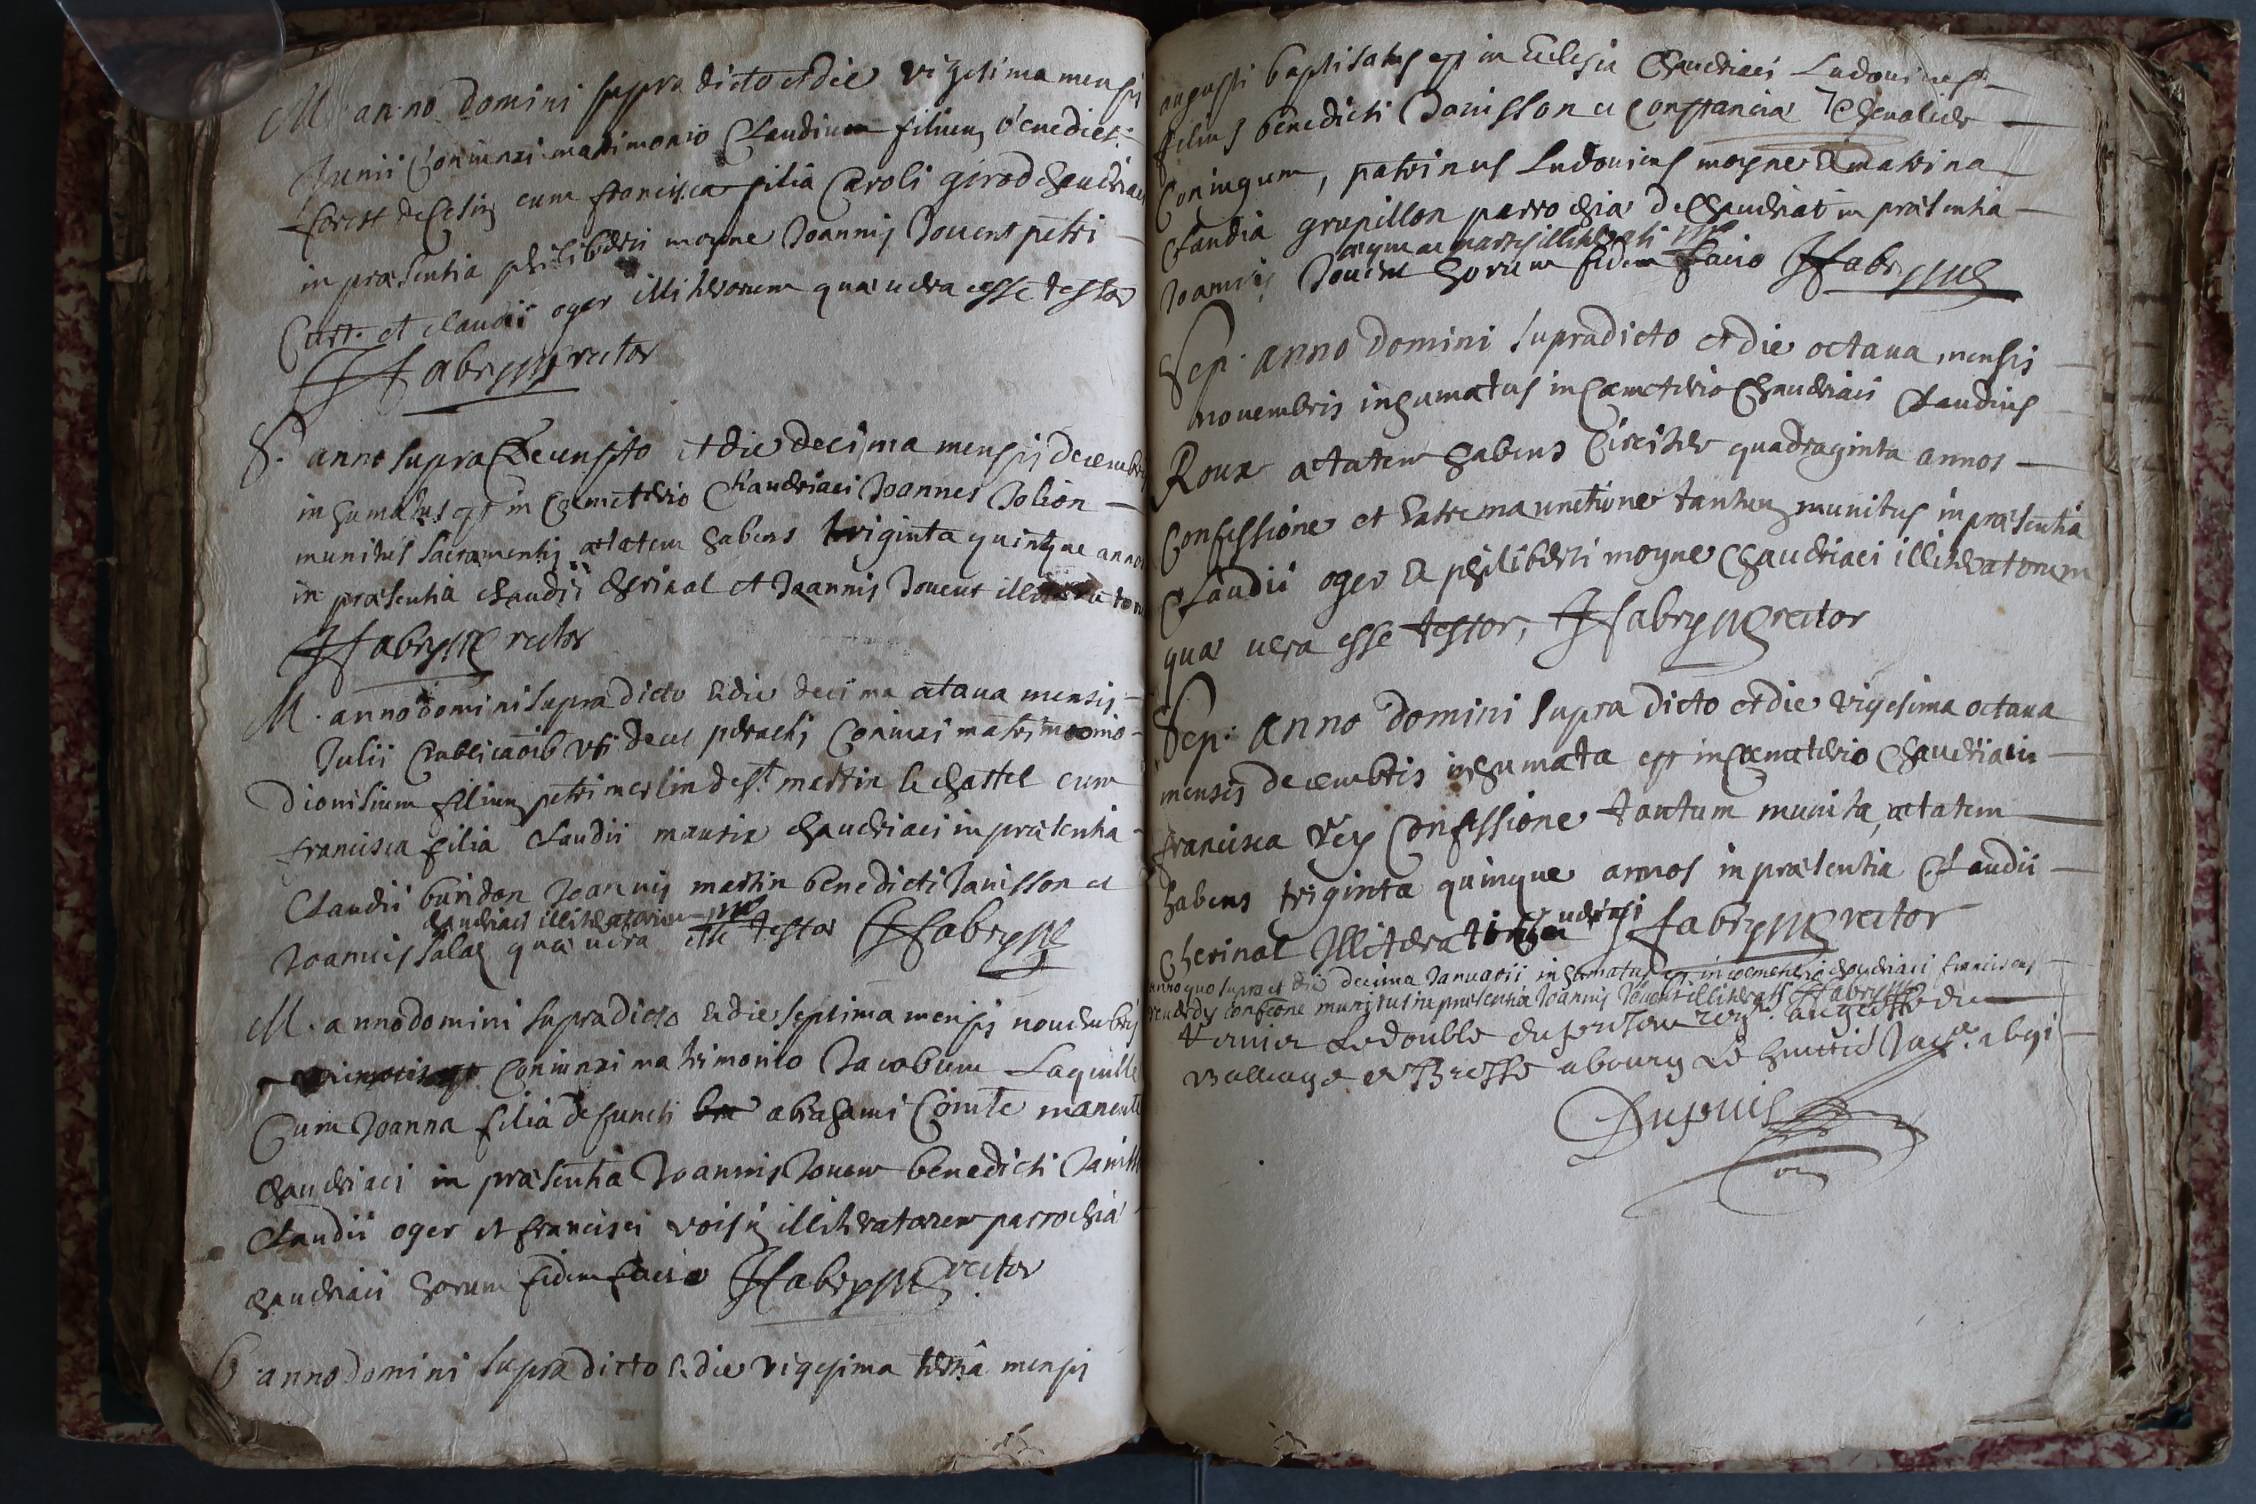 M. anno domini supra dicto et die vigesima mensis
Junii Coniunxi matrimonio Claudium filium benedicti
forest de Cesin cum francisca filia Caroli girod chaudriaci
in præsentia philiberti moyne Joannis Jouent petri
Curt. et claudii oger illitteratorum quæ uera esse testor
Fabry rector
S. anno supra et die decima mensis decembris
inhumatus est in Cœmeterio Chaudriaci Joannes Jolion
munitus sacramentis ætatem habens triginta quinque annos
in præsentia claudii cherinal et Joannis Jouent
Fabry rector
M. anno domini supradicto & die decima octaua mensis
Julii publicaõib[us] peractis Coniunxi matrimonio
Dionisium filium petri merlin de st. martin le chastel cum
francisca filia Claudii mauria chaudriaci in præsentia
Claudii buridon Joannis martin benedicti Janisson et
chaudriaci illitteratorum
Joannis salaz quæ uera esse testor Fabry
M. anno domini supradicto & die septima mensis nouembris
Coniunxi matrimonio Jacobum Laquille
Cum Joanna filia defuncti abrahami Comte manente
chaudriaci in præsentia Joannis Jouent benedicti Janisson
Claudii oger et francisci voisin illitteratorum parrochiæ
chaudriaci horum fidem facio Fabry rector
B. anno domini supradicto & die vigesima tertia mensis
augusti baptisatus est in Eclesia Chaudriaci Ludouicus
filius benedicti Janisson et Constancia Thevalier
Coniugum, patrinus Ludouicus moyne & matrina
Claudia grupillon parrochiæ de chaudriat in præsentia
Joannis Jouent horum fidem facio Fabry
Sep. anno domini supradicto et die octaua mensis
nouembris inhumatus in Cœmeterio Chaudriaci Claudius
Roux ætatem habens Circiter quadraginta annos
Confessione et Extrema unctione tantum munitus in præsentia
Claudii oger & philiberti moyne chaudriaci illitteratorum
quæ uera esse testor, Fabry rector
Sep. anno domini supra dicto et die vigesima octaua
mensis decembris inhumata est in Cœmeterio chaudriaci
francisca Rey Confessione tantum munita, ætatem
habens triginta quinque annos in præsentia Claudii
cherinal Illitterati chaudriaci Fabry rector
anno quo supra et die decima Januarii inhumatus est in cœmeterio chaudriaci franciscus
confessione munitus in præsentia Joannis Jouent illitterati Fabry
Le double du present au greffe du
Balliage de Bresse a bourg Le huictie
Dupuis